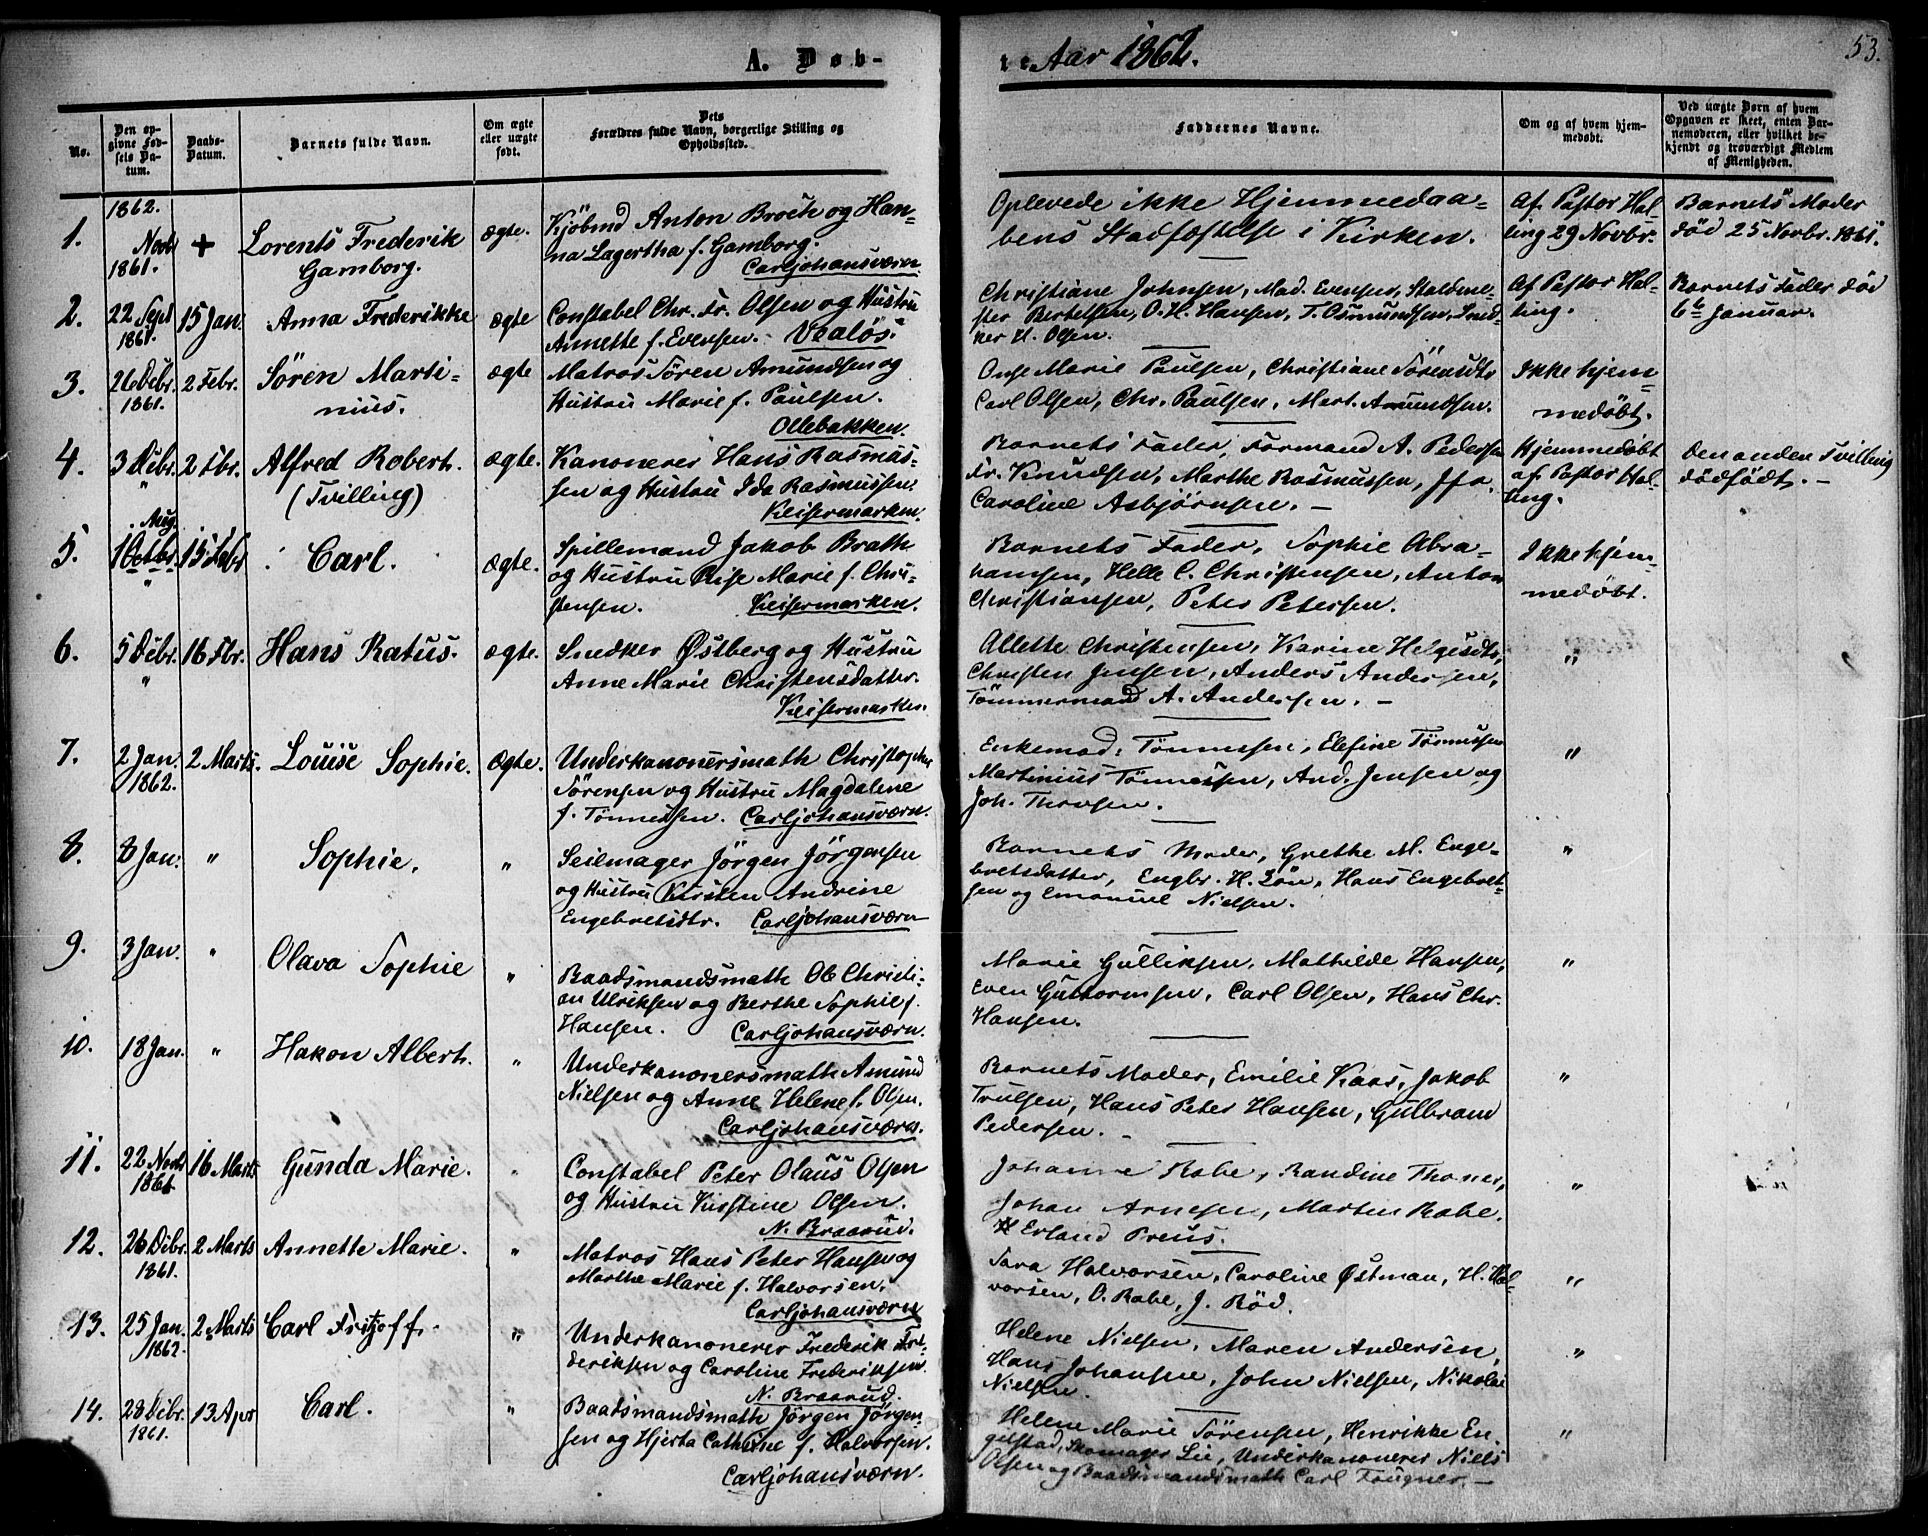 A. Døb-
te Aar 1862.
53.
No.
Den op-
givne Fød-
sels Da-
tum.
Daabs-
Datum.
Barnets fulde Navn.
Om ægte
eller uægte
født.
Dets
Forældres fulde Navn, borgerlige Stilling og
Opholdssted.
Faddernes Navne.
Om og af hvem hjem-
medøbt.
Ved uægte Børn af hvem
Opgaven er skeet, enten Bar-
nemoderen, eller hvilket be-
kjendt og troværdigt Medlem
af Menigheden.
1862.
1.
Novbr
1861.
+
Lorents Frederik
Gamborg.
ægte.
Kjöbmd Anton Broch og Han-
na Lagertha f. Gamborg.
Carljohansværn
Oplevede ikke Hjemmedaa-
bens Stadfæstelse i Kirken.
Af Pastor Hal-
ling 29 Novbr.
Barnets Moder
död 25 Novbr. 1861.
2.
22 Sept
1861.
15 Jan.
Anna Frederikke
ægte
Constabel Chr. Fr. Olsen og Hustru
Annette f. Evensen. Vealös.
Christiane Johnsen, Mad. Evensen, Staldme-
ster Bertelsen, O. H. Hansen, T. Osmundsen, Sned-
ker H. Olsen.
Af Pastor Hal-
ling.
Barnets Fader död
6te Januar.
3.
26 Debr.
1861.
2 Febr.
Sören Marti-
nius.
ægte
Matros Sören Amundsen og
Hustru Marie f. Paulsen.
Ollebakken.
Inge Marie Paulsen, Christiane Sörensdtr
Carl Olsen, Chr. Paulsen, Mart. Amundsen.
Ikke hjem-
medøbt.
4.
3 Debr.
"
2 Fbr.
Alfred Robert.
(Tvilling)
ægte.
Kanoneer Hans Rasmus-
sen og Hustru Ida Rasmussen.
Keisermarken.
Barnets Fader, Formand A. Pedersen
Fr. Knudsen, Marthe Rasmussen, Jfr.
Caroline Asbjørnsen. –
Hjemmedøbt
af Pastor Hal-
ling.
Den anden Tvilling
dödfödt. –
5.
Aug.
1 Octbr.
"
15 Febr
Carl.
ægte.
Spillemand Jakob Brath
og Hustru Elise Marie f. Chri-
stensen. Keisermarken.
Barnets Fader, Sophie Abra-
hamsen, Helle C. Christensen, Anton
Christiansen, Peter Petersen.
Ikke hjem-
medøbt.
6.
5 Debr.
"
16 Fbr.
Hans Ratus.
ægte.
Snedker Østberg og Hustru
Anne Marie Christensdatter.
Keisermarken.
Allette Christensen, Karine Helgesdtr,
Christen Jensen, Anders Andersen,
Tömmermand A. Andersen. –
"
7.
2 Jan.
1862.
2 Marts.
Louise Sophie.
Ægte.
Underkanonersmath Christopher
Sörensen og Hustru Magdalene
f. Tönnesen. Carljohansværn.
Enkemad. Tönnessen, Elefine Tönnessen
Martinius Tönnessen, And. Jensen og
Joh. Thorsen.
"
8.
8 Jan.
"
Sophie.
"
Seilmager Jörgen Jörgensen
og Hustru Kirsten Andrine
Engebretsdtr. Carljohansværn
Barnets Moder, Grethe M. Enge-
bretsdatter, Engbr. H. Lön, Hans Engebret-
sen og Emanuel Nielsen.
"
9.
3 Jan.
"
Olava Sophie
"
Baadsmandsmath Ob Christi-
an Ulriksen og Berthe Sophie f.
Hansen. Carljohansværn.
Marie Gulliksen, Mathilde Hansen,
Even Guttormsen, Carl Olsen, Hans Chr.
Hansen.
"
10.
18 Jan.
"
Hakon Albert.
"
Underkanonersmath Amund
Nielsen og Anne Helene f. Olsen.
Carljohansværn.
Barnets Moder, Emilie Kaas, Jakob
Trulsen, Hans Peter Hansen, Gulbrand
Pedersen. –
"
11.
22 Novbr
1861
16 Marts
Gunda Marie.
"
Constabel Peter Olaus Olsen
og Hustru Kirstine Olsen.
N. Braarud.
Johanne Rabe, Randine Thanes,
Johan Arnesen, Martin Rabe.
Erland Preus.
"
12.
26 Debr.
1861.
2 Marts
Annette Marie.
"
Matros Hans Peter Hansen og
Marthe Marie f. Halvorsen.
Carljohansværn
Sara Halvorsen, Caroline Østman, H. Hal-
vorsen, O. Rabe, J. Röd.
"
13.
25 Jan.
1862.
2 Marts
Carl Fritjoff.
"
Underkanonerer Frederik Fre-
deriksen og Caroline Frederiksen
N. Braarud.
Helene Nielsen, Maren Andersen,
Hans Johansen, John Nielsen, Nikolai
Nielsen.
"
14.
28 Debr.
1861.
13 Apr
Carl.
"
Baadsmandsmath Jörgen Jörgen-
sen og Hjerta Cathrine f. Halvorsen.
Carljohansværn.
Helene Marie Sörensen, Henrikke En-
gelstad, Skomager Lie, Underkanonerer Niels
Olsen og Baadsmandsmath Carl Fougner. –
"